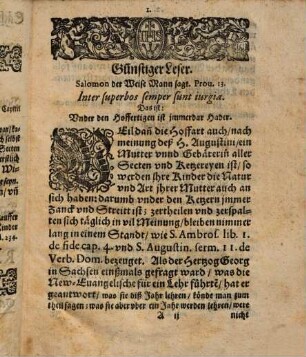 1.
IHS
Günstiger Leser.
Salomon der Weise Mann sagt. Prou. 13.
Inter superbos semper sunt iurgia.
Das ist:
Vnder den Hoffertigen ist immerdar Hader.
Weil dañ die Hoffart auch/nach
meinung deß H. Augustini/ein
Mutter vnnd Gebärerin aller
Secten vnd Ketzereyen ist/ so
werden jhre Kinder die Natur
vnd Art jhrer Mutter auch an
sich haben: darumb vnder den Ketzern jmmer
Zanck vnd Streitt ist; zertheilen vnd zerspal-
ten sich täglich in vil Meinung/bleiben nimmer
lang in einem Standt/ wie S. Ambros. lib. 1.
de fide cap. 4. vnd S. Augustin. serm. 11. de
Verb. Dom. bezeuget. Als der Hertzog Georg
in Sachsen einsmals gefragt ward / was die
New-Euangelische für ein Lehr führtē/ hat er
geantwort/ was sie diß Jahr lehren / köndte man zum
theil sagen: was sie aber vber ein Jahr werden lehren/ were
A ij
nicht